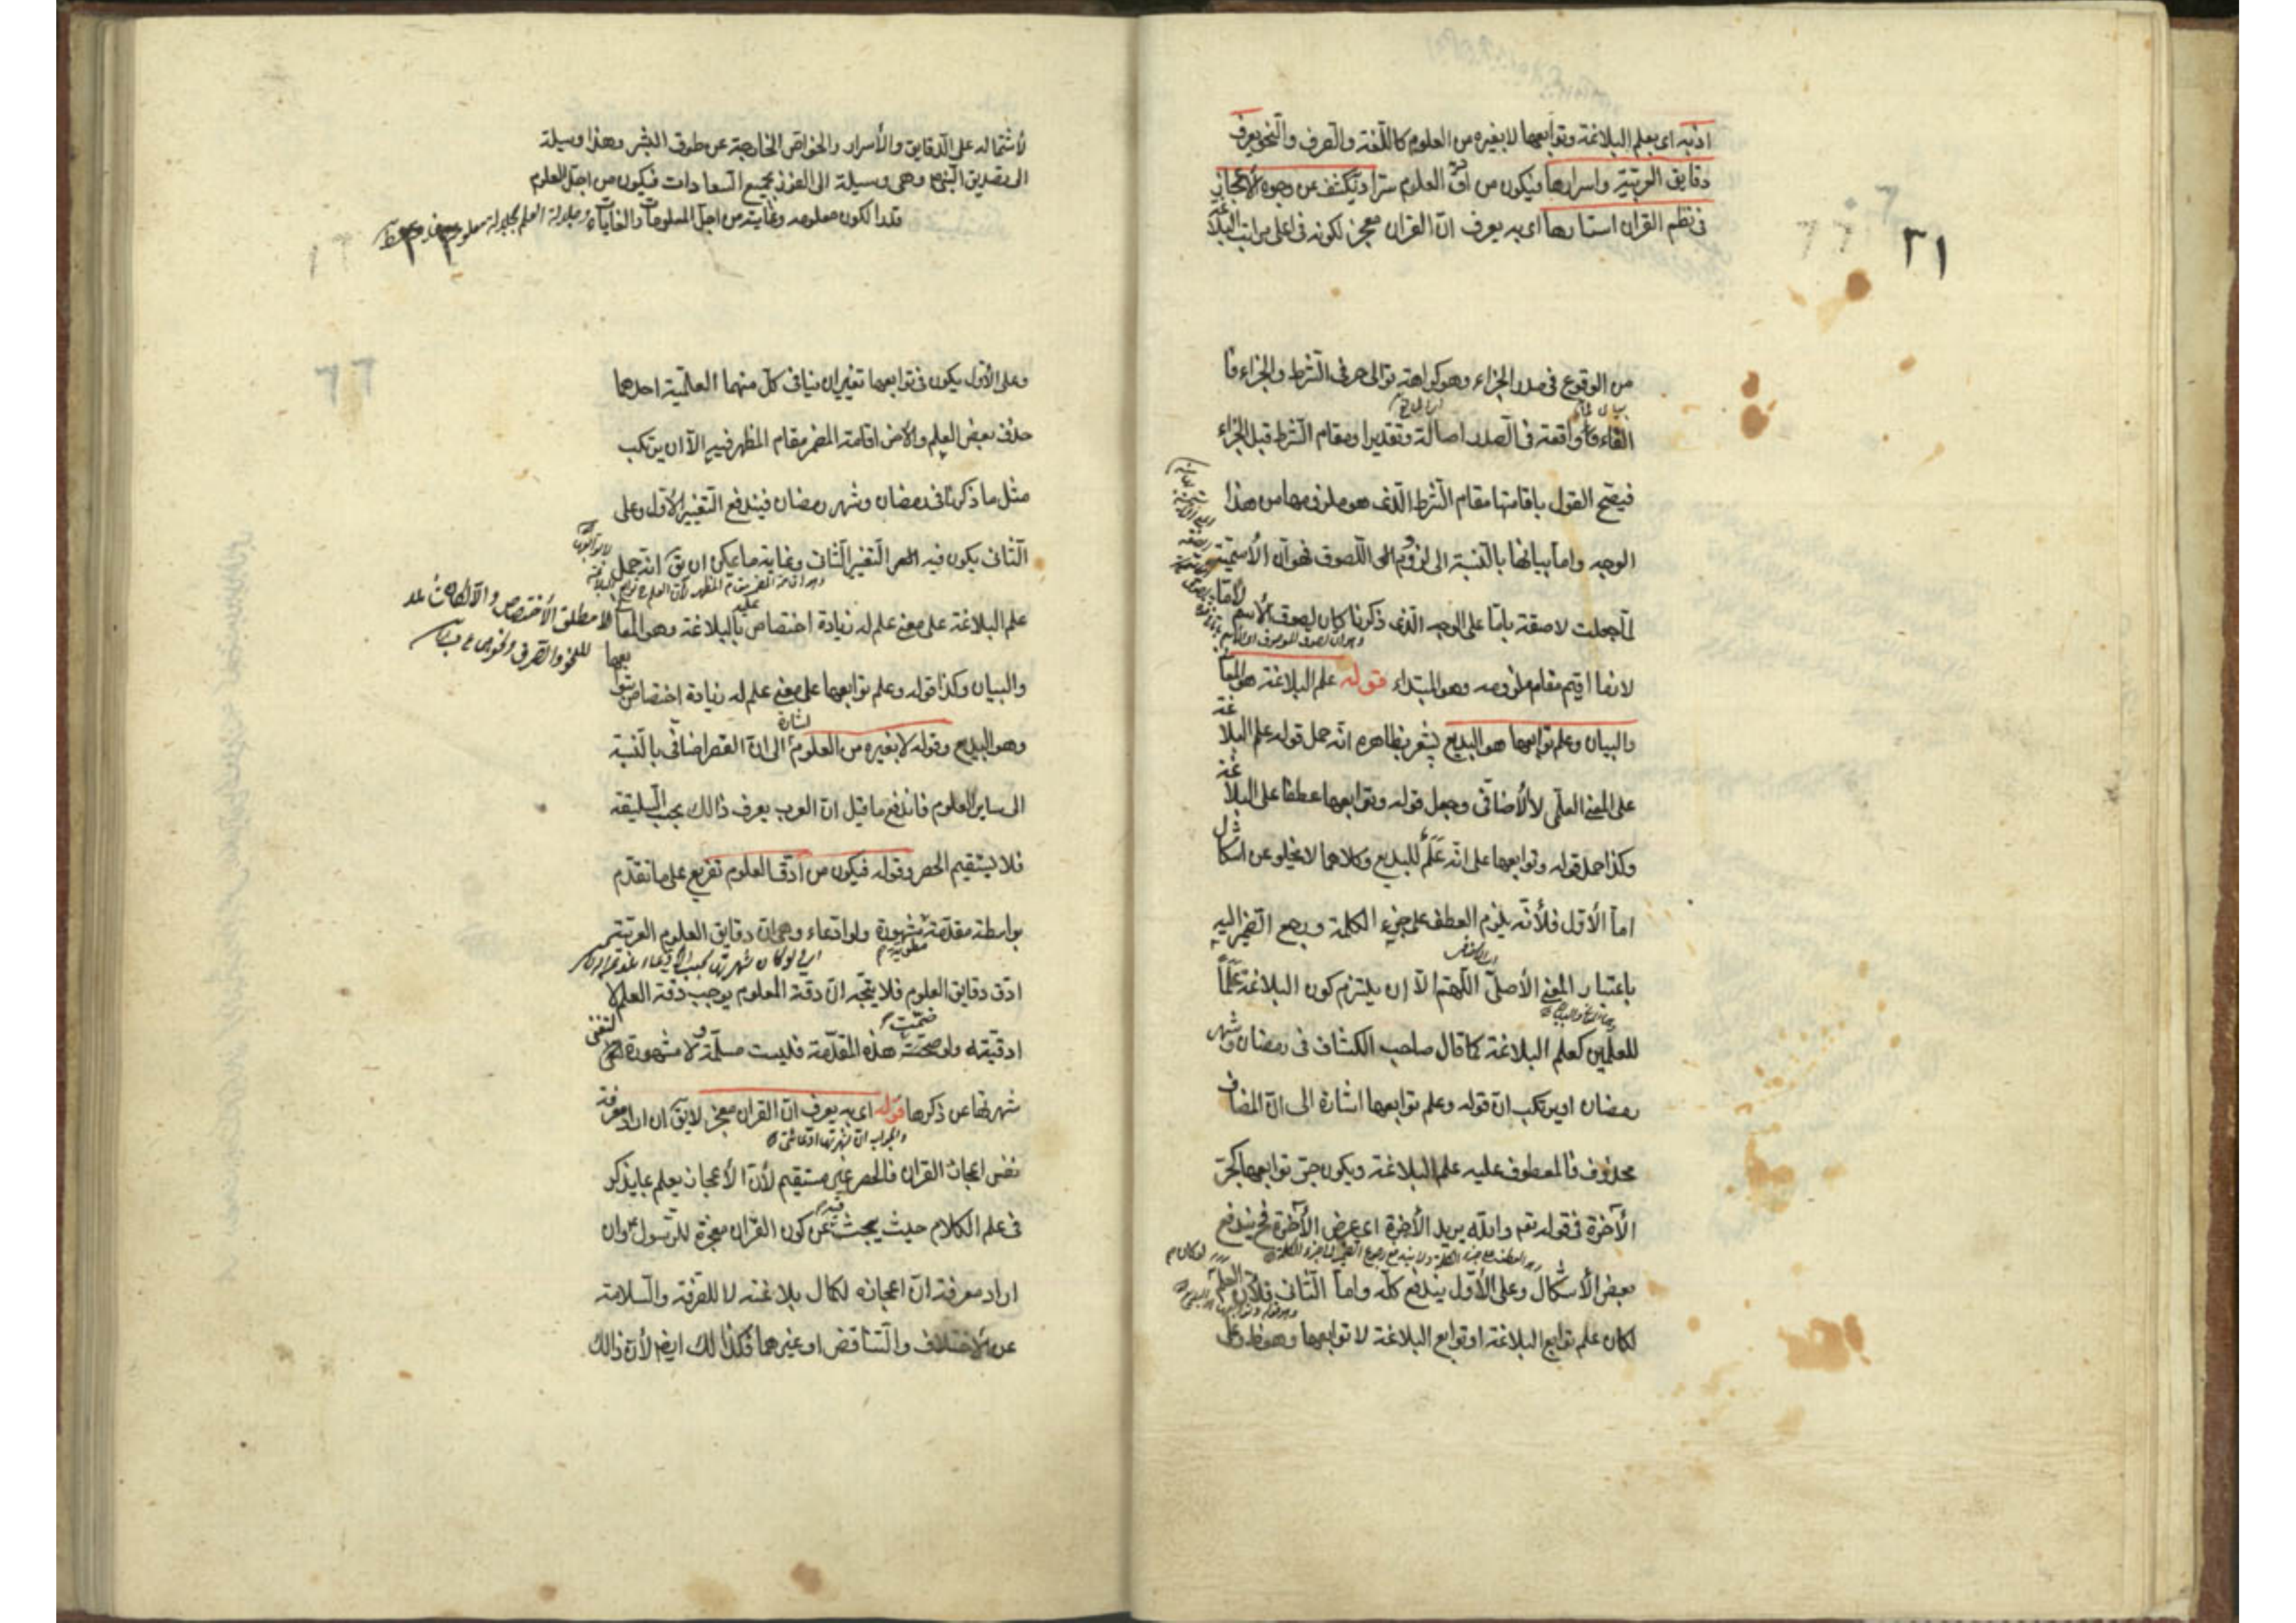 اذ به اى بعلم البلاغة وتوابعها لا بغيره من العلوم كاللغة والصرف والنحو يعرف
دقايق العربية واسرارها فيكون من ادق العلوم سرا وتكشف عن وجوه الأعجاز
فى نظم القران استارها اى به يعرف ان القران معجز لكونه فى اعلى مراتب البلاغة
٢١
من الوقوع فى صدر الجزاء وهو كراهة توالى حرفى الشرط والجزاء فا
الفاء واقعة فى الصدر اصالة وتقديرا ومقام الشرط قبل الجزاء
فيصح القول باقامتها مقام الشرط الذى هو ملزومها من هذا
الوجه واما بيانها بالنسبة الى لزوم اللصوق فهو ان الأسمية
لما جعلت لاصقة باما على الوجه الذى ذكرنا كان لصوق الأسم لأما
لازما اقيم مقام ملزومه وهو المبتداء قوله علم البلاغة هو المعا
والبيان وعلم توابعها هو البديع يشعر بظاهره انه حمل قوله علم البلاغة
على المعنى العلمى لا الأضافى وجعل قوله وتوابعها عطفا على البلاغة
وكذا حمل قوله وتوابعها على انه علم للبديع وكلاهما لا يخلو عن اشكال
اما الأول فلأنه يلزم العطف على جزء الكلمة ورجع الضمير اليه
باعتبار المعنى الأصلى اللهم الا ان يلتزم كون البلاغة علما
للعلمين كعلم البلاغة كما قال صاحب الكشاف فى رمضان وشهر
رمضان او يرتكب ان قوله وعلم توابعها اشارة الى ان المضاف
محذوف فالمعطوف عليه علم البلاغة ويكون جر توابعها كجر
الآخرة فى قوله تعم والله يريد الأخرة اى عرض الأخرة فح يندفع
بعض الأشكال وعلى الأول يندفع كله واما الثانى فلأن العلم
لكان علم توابع البلاغة او توابع البلاغة لا توابعها وهو ظ وعلى
لأشتماله على الدقايق والأسرار والخواص الخارجة عن طوق البشر وهذا وسيلة
الى تصديق النبى وهى وسيلة الى الفوز بجميع السعادات فيكون من اجل العلوم
قدرا لكون معلومه وغايته من اجل المعلومات والغايات وجلالة العلم بجلالة معلومه
٢٢
وعلى الأول يكون فى توابعها تغييران ينافى كل منهما العلمية احدهما
حذف بعض العلم والاخر اقامة المضمر مقام المظهر فيه الا ان يرتكب
مثل ما ذكرنا فى رمضان وشهر رمضان فيندفع التغيير الأول وعلى
الثانى يكون فيه التغيير الثانى وغاية ما يمكن ان يق انه حمل
علم البلاغة على معنى علم له زيادة اختصاص بالبلاغة وهو المعا
لا مطلق الأختصاص
والبيان وكذا قوله وعلم توابعها على معنى علم له زيادة اختصاص بتوابعها
وهو البديع وقوله لا بغيره من العلوم اشارة الى ان القصر اضافى بالنسبة
الى ساير العلوم فاندفع ما قيل ان العرب يعرف ذالك بحسب السليقة
فلا يستقيم الحصر وقوله فيكون من ادق العلوم تفريع على ما تقدم
بواسطة مقدمة مشهورة ولو ادعاء وهى ان دقايق العلوم العربية
ادق دقايق العلوم فلا يتجه ان دقة المعلوم يوجب دقة العلم لا
ادقيته ولو ضمت هذه المقدمة فليست مسلمة ولا مشهورة لتغنى
شهرتها عن ذكرها قوله اى به يعرف ان القران معجز لا يق ان اراد معرفة
نفس اعجاز القران فالحصر غير مستقيم لأن الأعجاز يعلم بما يذكر
فى علم الكلام حيث يبحث فيه عن كون القران معجزة للرسول وان
اراد معرفة ان اعجازه لكمال بلاغته لا للصرفة والسلامة
عن الأختلاف والتناقض او غيرهما فكذا لك ايضا لأن ذالك